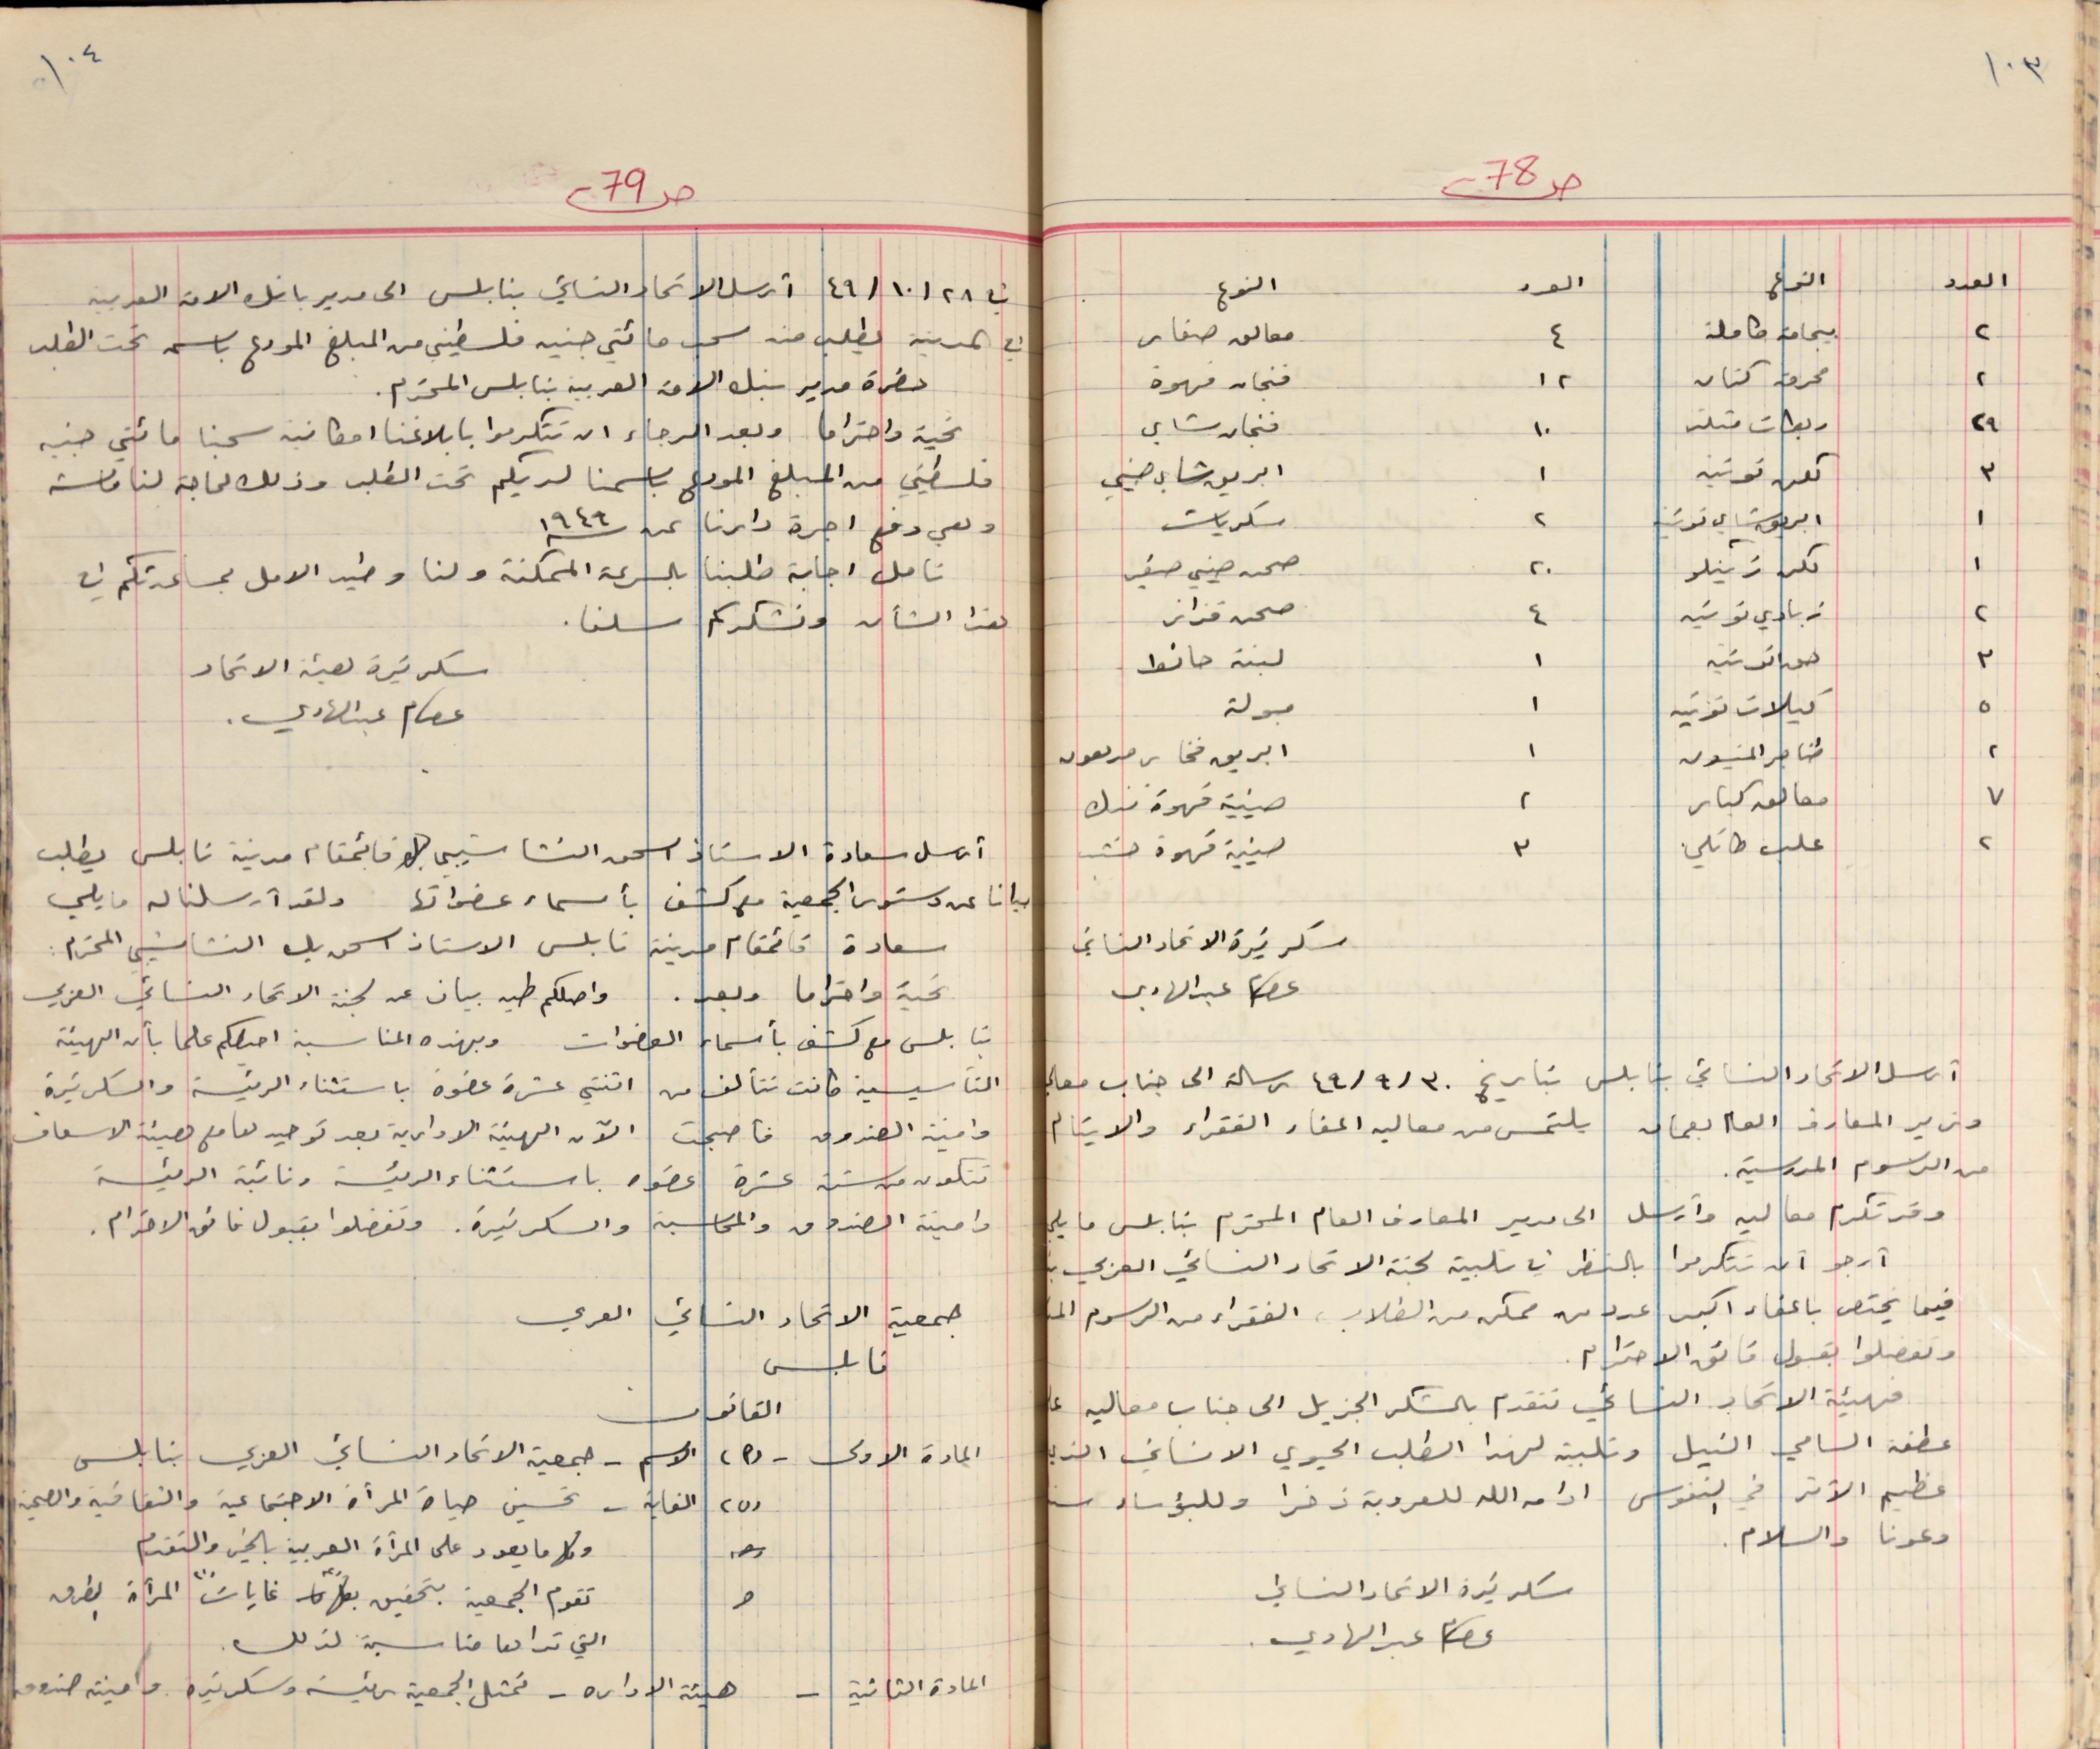 ١٠٣
ص 78
العدد النوع العدد النوع
٢ بيجامة كاملة ٤ معالق صغار
٢ محرمة كتان ١٢ فنجان قهوة
٢٩ ربطات ١٠ فنجان شاي
٣ توتيه ١ ابريق شاي صيني
١ ابريق شاي توتيه ٢ سكريات
١ ٢٠ صحن صيني صغير
٢ زبادي توتيه ٤ صحن قزاز
٣ توتيه ١ لبنة حانوا
٥ كيلات توتيه ١ مبولة
٢ المنيوم ١ ابريق فخار مدهون
٧ معالق كبار ٢ صينية قهوة
٢ علب ٣ صينية قهوة خشب
سكرتيرة الاتحاد النسائي
عصام عبد الهادي
أرسل الاتحاد النسائي بنابلس بتاريخ ٤٩/٩/٣٠ رسالة الى جناب معالي
وزير المعارف بعمان يلتمس من معاليه اعفاء الفقراء والايتام
من الرسوم المدرسية.
وقد تكرم معاليه وأرسل الى مدير المعارف العام المحترم بنابلس ما يلي
أرجو أن تتكرموا بالنظر في تلبية لجنة الاتحاد النسائي العربي
فيما يختص باعفاء اكبر عدد من ممكن من الطلاب، الفقراء من الرسوم
وتفضلوا بقبول فائق الاحترام.
فهيئة الاتحاد النسائي تتقدم بالشكر الجزيل الى جناب معاليه
عطفه السامي النبيل وتلبية لهذا الطلب الحيوي الانساني
عظيم الأثر في النفوس ادامه الله للعروبة ذخرا وللبؤساء
وعونا والسلام.
سكرتيرة الاتحاد النسائي
عصام عبد الهادي.
١٠٤
ص 79
في ٤٩/١٠/٢٨ أرسل الاتحاد النسائي بنابلس الى مدير بانك الامة العربية
في المدينة يطلب منه سحب مائتي جنيه فلسطيني من المبلغ المودع باسمه تحت الطلب
حضرة مدير بنك الامة العربية بنابلس المحترم.
تحية واحتراما وبعد الرجاء ان تتكرموا بابلاغنا امكانية سحبنا مائتي جنيه
فلسطيني من المبلغ المودع باسمنا لديكم تحت الطلب وذلك لحاجة لنا ماسة
وهي دفع اجرة دارنا عن سنة ١٩٤٩
نامل اجابة طلبنا بالسرعة الممكنة ولنا وطيد الامل بمساعدتكم في
هذا الشأن ونشكركم سلفا.
سكرتيرة هيئة الاتحاد
عصام عبد الهادي.
أرسل سعادة الاستاذ اسحق النشاشيبي قائمقام مدينة نابلس يطلب
بيانا عن دستور الجمعية مع كشف بأسماء عضواتها ولقد أرسلنا له ما يلي
سعادة قائمقام مدينة نابلس الاستاذ اسحق بك النشاشيبي المحترم:
تحية واحتراما وبعد. واصلكم طيه بيان عن لجنة الاتحاد النسائي العربي
بنابلس مع كشف بأسماء العضوات وبهذه المناسبة احيطكم علما بأن الهيئة
التأسيسية كانت تتألف من اثنتي عشرة عضوة باستثناء الرئيسة والسكرتيرة
وامينة الصندوق فأصبحت الآن الهيئة الادارية بعد توحيدها مع هيئة الاسعاف
تتكون من ستة عشرة عضوه باستثناء الرئيسة ونائبة الرئيسة
وامينة الصندوق والمحاسبة والسكرتيرة. وتفضلوا بقبول فائق الاحترام.
جمعية الاتحاد النسائي العربي
نابلس
القانون
المادة الاولى - (١) الاسم - جمعية الاتحاد النسائي العربي بنابلس
(ب) الغاية - تحسين حياة المرأة الاجتماعية والثقافية والصحية
وكل ما يعود على المرأة العربية بالخير والتقدم
تقوم الجمعية بتحقيق غايات المرأة بالطرق
التي تراها مناسبة لذلك.
المادة الثانية - هيئة الاداره - تمثل الجمعية رئيسة وسكرتيره وامينة صندوق